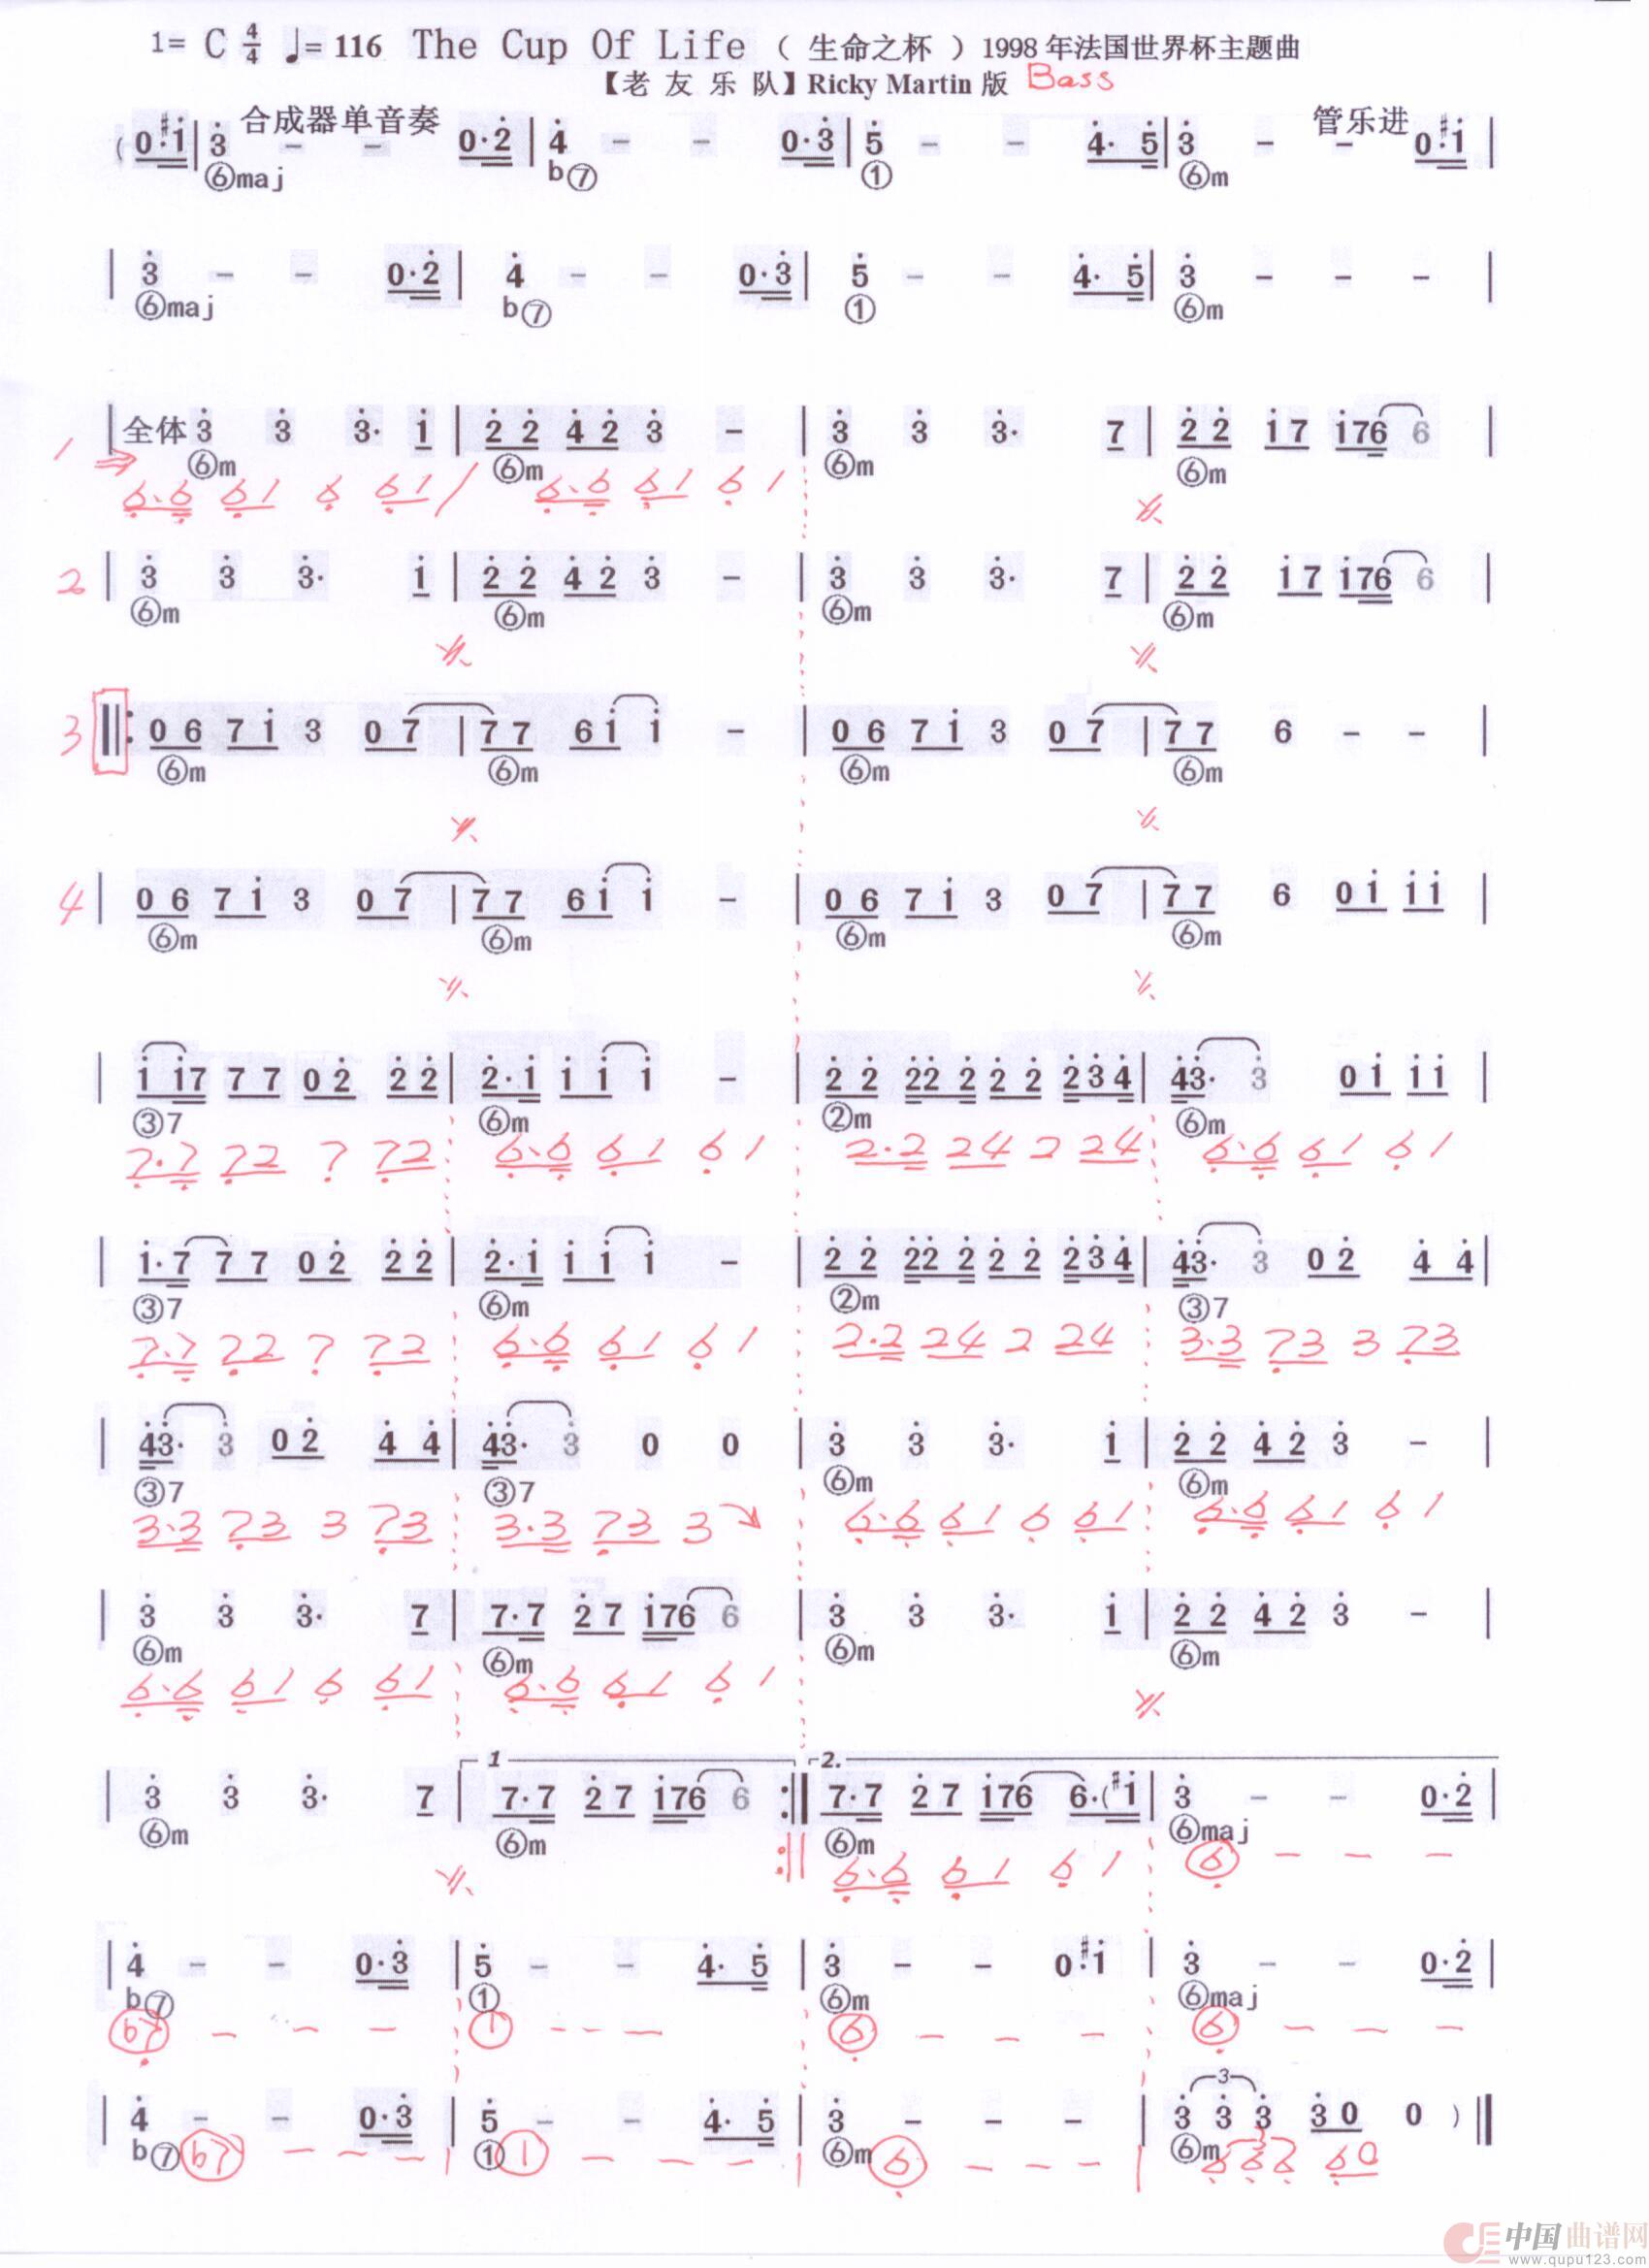 1= C 4/4 ♩= 116 The Cup Of Life （ 生命之杯 ）1998 年法国世界杯主题曲
【老 友 乐 队】Ricky Martin 版 Bass
合成器单音奏 管乐进
( 0·#i | 3̇ - - 0·2̇ | 4̇ - - 0·3̇ | 5̇ - - 4̇· 5̇ | 3̇ - - 0·#i |
⑥maj b⑦ ① ⑥m
| 3̇ - - 0·2̇ | 4̇ - - 0·3̇ | 5̇ - - 4̇· 5̇ | 3̇ - - - |
⑥maj b⑦ ① ⑥m
| 全体 3̇ 3̇ 3̇· i | 2̇ 2̇ 4̇ 2̇ 3̇ - | 3̇ 3̇ 3̇· 7 | 2̇ 2̇ i 7 i76 6 |
1 ⑥m ⑥m ⑥m ⑥m
6·6 61 6 61 / 6·6 61 6 1
2 | 3̇ 3̇ 3̇· i | 2̇ 2̇ 4̇ 2̇ 3̇ - | 3̇ 3̇ 3̇· 7 | 2̇ 2̇ i 7 i76 6 |
⑥m ⑥m ⑥m ⑥m
3 ‖: 0 6 7 i 3 0 7 | 7 7 6 i i - | 0 6 7 i 3 0 7 | 7 7 6 - - |
⑥m ⑥m ⑥m ⑥m
4 | 0 6 7 i 3 0 7 | 7 7 6 i i - | 0 6 7 i 3 0 7 | 7 7 6 0 i i i |
⑥m ⑥m ⑥m ⑥m
| i i7 7 7 0 2̇ 2̇ 2̇ | 2̇·i i i i - | 2̇ 2̇ 2̇2̇ 2̇ 2̇ 2̇ 2̇3̇4̇ | 4̇3̇· 3̇ 0 i i i |
③7 ⑥m ②m ⑥m
7·7 72 7 72 6·6 61 6 1 2·2 24 2 24 6·6 61 6 1
| i·7 7 7 0 2̇ 2̇ 2̇ | 2̇·i i i i - | 2̇ 2̇ 2̇2̇ 2̇ 2̇ 2̇ 2̇3̇4̇ | 4̇3̇· 3̇ 0 2̇ 4̇ 4̇ |
③7 ⑥m ②m ③7
7·7 72 7 72 6·6 61 6 1 2·2 24 2 24 3·3 73 3 73
| 4̇3̇· 3̇ 0 2̇ 4̇ 4̇ | 4̇3̇· 3̇ 0 0 | 3̇ 3̇ 3̇· i | 2̇ 2̇ 4̇ 2̇ 3̇ - |
③7 ③7 ⑥m ⑥m
3·3 73 3 73 3·3 73 3 6·6 61 6 61 6·6 61 6 1
| 3̇ 3̇ 3̇· 7 | 7·7 2̇ 7 i76 6 | 3̇ 3̇ 3̇· i | 2̇ 2̇ 4̇ 2̇ 3̇ - |
⑥m ⑥m ⑥m ⑥m
6·6 61 6 61 6·6 61 6 1
1 2.
| 3̇ 3̇ 3̇· 7 | 7·7 2̇ 7 i76 6 :‖ 7·7 2̇ 7 i76 6·(#i | 3̇ - - 0·2̇ |
⑥m ⑥m ⑥m ⑥maj
:‖ 6·6 61 6 1 ⑥ - - -
| 4̇ - - 0·3̇ | 5̇ - - 4̇· 5̇ | 3̇ - - 0·#i | 3̇ - - 0·2̇ |
b⑦ ① ⑥m ⑥maj
b7 - - - ① - - - ⑥ - - - ⑥ - - -
3
| 4̇ - - 0·3̇ | 5̇ - - 4̇· 5̇ | 3̇ - - - | 3̇ 3̇ 3̇ 3̇ 0 0 ) ‖
b⑦ b7 - - - | ① ① - - - | ⑥m ⑥ - - - | ⑥m 6 6 6 60
中国曲谱网
www.qupu123.com